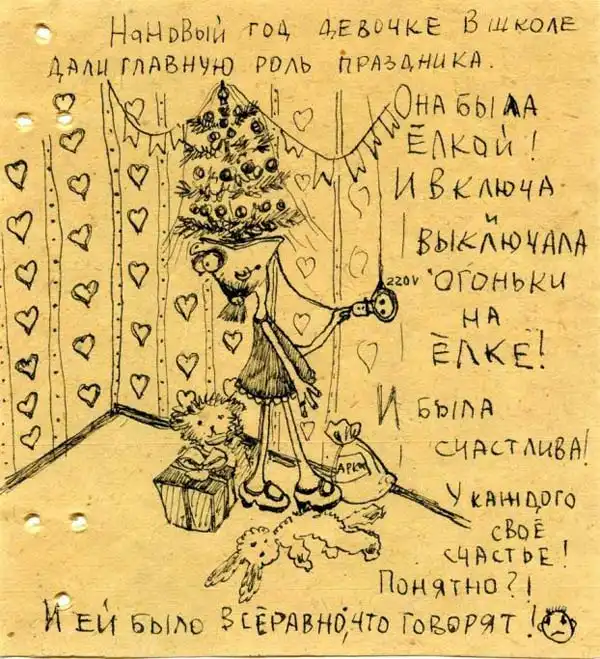 НА НОВЫЙ ГОД ДЕВОЧКЕ В ШКОЛЕ
ДАЛИ ГЛАВНУЮ РОЛЬ ПРАЗДНИКА.
ОНА БЫЛА
ЁЛКОЙ!
И ВКЛЮЧА
И
ВЫКЛЮЧАЛА
220V
ОГОНЬКИ
НА
ЁЛКЕ!
И БЫЛА
СЧАСТЛИВА!
У КАЖДОГО
СВОЁ
СЧАСТЬЕ!
ПОНЯТНО?!
И ЕЙ БЫЛО ВСЁРАВНО, ЧТО ГОВОРЯТ!